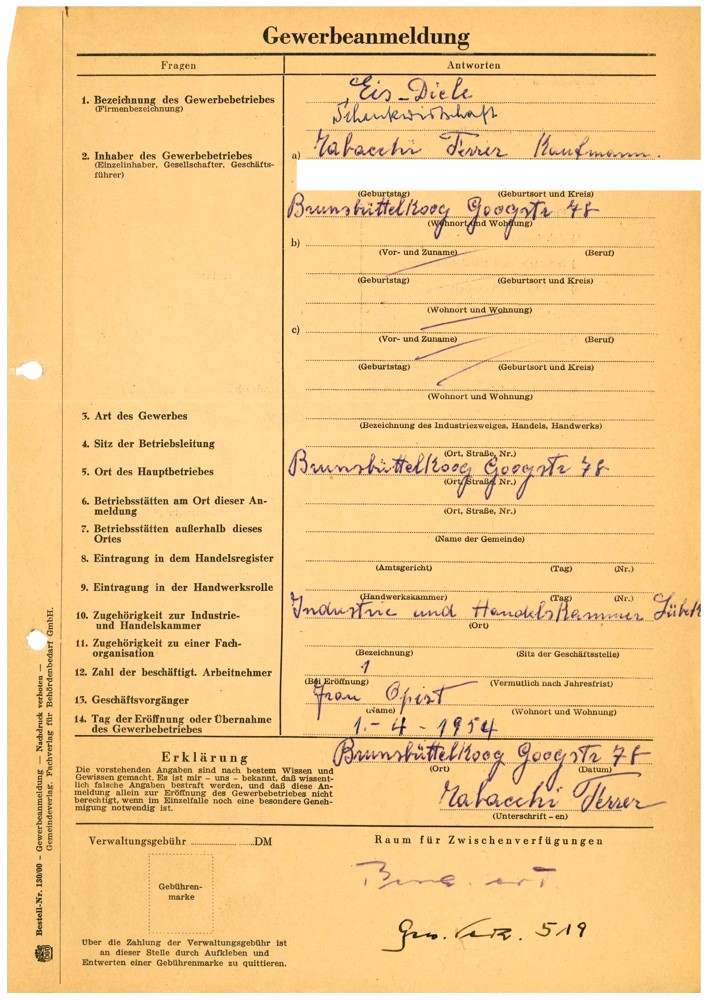 Gewerbeanmeldung
Fragen Antworten
1. Bezeichnung des Gewerbebetriebes
(Firmenbezeichnung)
Eis-Diele
Schenkwirtschaft
2. Inhaber des Gewerbebetriebes
(Einzelinhaber, Gesellschafter, Geschäfts-
führer)
a) Tabacchi Ferrer Kaufmann.
(Geburtstag) (Geburtsort und Kreis)
Brunsbüttelkoog Googstr 78
(Wohnort und Wohnung)
b)
(Vor- und Zuname) (Beruf)
(Geburtstag) (Geburtsort und Kreis)
(Wohnort und Wohnung)
c)
(Vor- und Zuname) (Beruf)
(Geburtstag) (Geburtsort und Kreis)
(Wohnort und Wohnung)
3. Art des Gewerbes
(Bezeichnung des Industriezweiges, Handels, Handwerks)
4. Sitz der Betriebsleitung
(Ort, Straße, Nr.)
5. Ort des Hauptbetriebes
Brunsbüttelkoog Googstr 78
(Ort, Straße, Nr.)
6. Betriebsstätten am Ort dieser An-
meldung
(Ort, Straße, Nr.)
7. Betriebsstätten außerhalb dieses
Ortes
(Name der Gemeinde)
8. Eintragung in dem Handelsregister
(Amtsgericht) (Tag) (Nr.)
9. Eintragung in der Handwerksrolle
(Handwerkskammer) (Tag) (Nr.)
10. Zugehörigkeit zur Industrie-
und Handelskammer
Industrie und Handelskammer Lübek
(Ort)
11. Zugehörigkeit zu einer Fach-
organisation
(Bezeichnung) (Sitz der Geschäftsstelle)
12. Zahl der beschäftigt. Arbeitnehmer
1
(Bei Eröffnung) (Vermutlich nach Jahresfrist)
13. Geschäftsvorgänger
Frau Opist
(Name) (Wohnort und Wohnung)
14. Tag der Eröffnung oder Übernahme
des Gewerbebetriebes
1.-4-1954
Erklärung
Die vorstehenden Angaben sind nach bestem Wissen und
Gewissen gemacht. Es ist mir – uns – bekannt, daß wissent-
lich falsche Angaben bestraft werden, und daß diese An-
meldung allein zur Eröffnung des Gewerbebetriebes nicht
berechtigt, wenn im Einzelfalle noch eine besondere Geneh-
migung notwendig ist.
Brunsbüttelkoog Googstr 78
(Ort) (Datum)
Tabacchi Ferrer
(Unterschrift - en)
Verwaltungsgebühr DM
Gebühren-
marke
Über die Zahlung der Verwaltungsgebühr ist
an dieser Stelle durch Aufkleben und
Entwerten einer Gebührenmarke zu quittieren.
Raum für Zwischenverfügungen
Gew. Verz. 519
Bestell-Nr. 130/00 – Gewerbeanmeldung — Nachdruck verboten —
Gemeindeverlag, Fachverlag für Behördenbedarf GmbH.